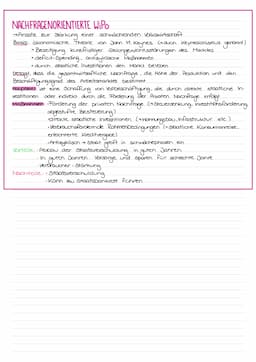 NACHFRAGENORIENTIERTE WiPo
→Ansatz zur Stärkung einer schwächelnden Volkswirtschaft
Basis: ökonomische Theorie von John M. Keynes (→auch Keynesianismus genannt)
• Beseitigung kurzfristiger Gleichgewichtsstörungen des Marktes
• deficit-Spending, antizyklische Maßnahmen
• durch staatliche Investitionen den Markt beleben
besagt, dass die gesamtwirtschaftliche Nachfrage, die Höhe der Produktion und den
Beschäftigungsgrad des Arbeitsmarktes bestimmt
Hauptziel ist eine Schaffung von Vollbeschäftigung, die durch direkte staatliche In-
vestitionen oder indirekt durch die Förderung der Privaten Nachfrage erfolgt
Maßnahmen: -Förderung der privaten Nachfrage (→Steuersenkung, Investitionsförderung,
abgestufte Besteuerung)
-direkte staatliche Investitionen (→Wohnungsbau, Infrastruktur etc.)
-Verbrauchsfördernde Rahmenbedingungen (→Staatliche Konsumanreize,
erleichterte Kreditvergabe)
-Antizyklisch → Staat greift in schwächephasen ein
Vorteile: -Abbau der Staatsverschuldung in guten Jahren
-In guten Jahren Vorsorge und sparen für schlechte Jahre
-Verbraucher Stärkung
Nachteile: -Staatsverschuldung
-Kann zu Staatsbankrott führen